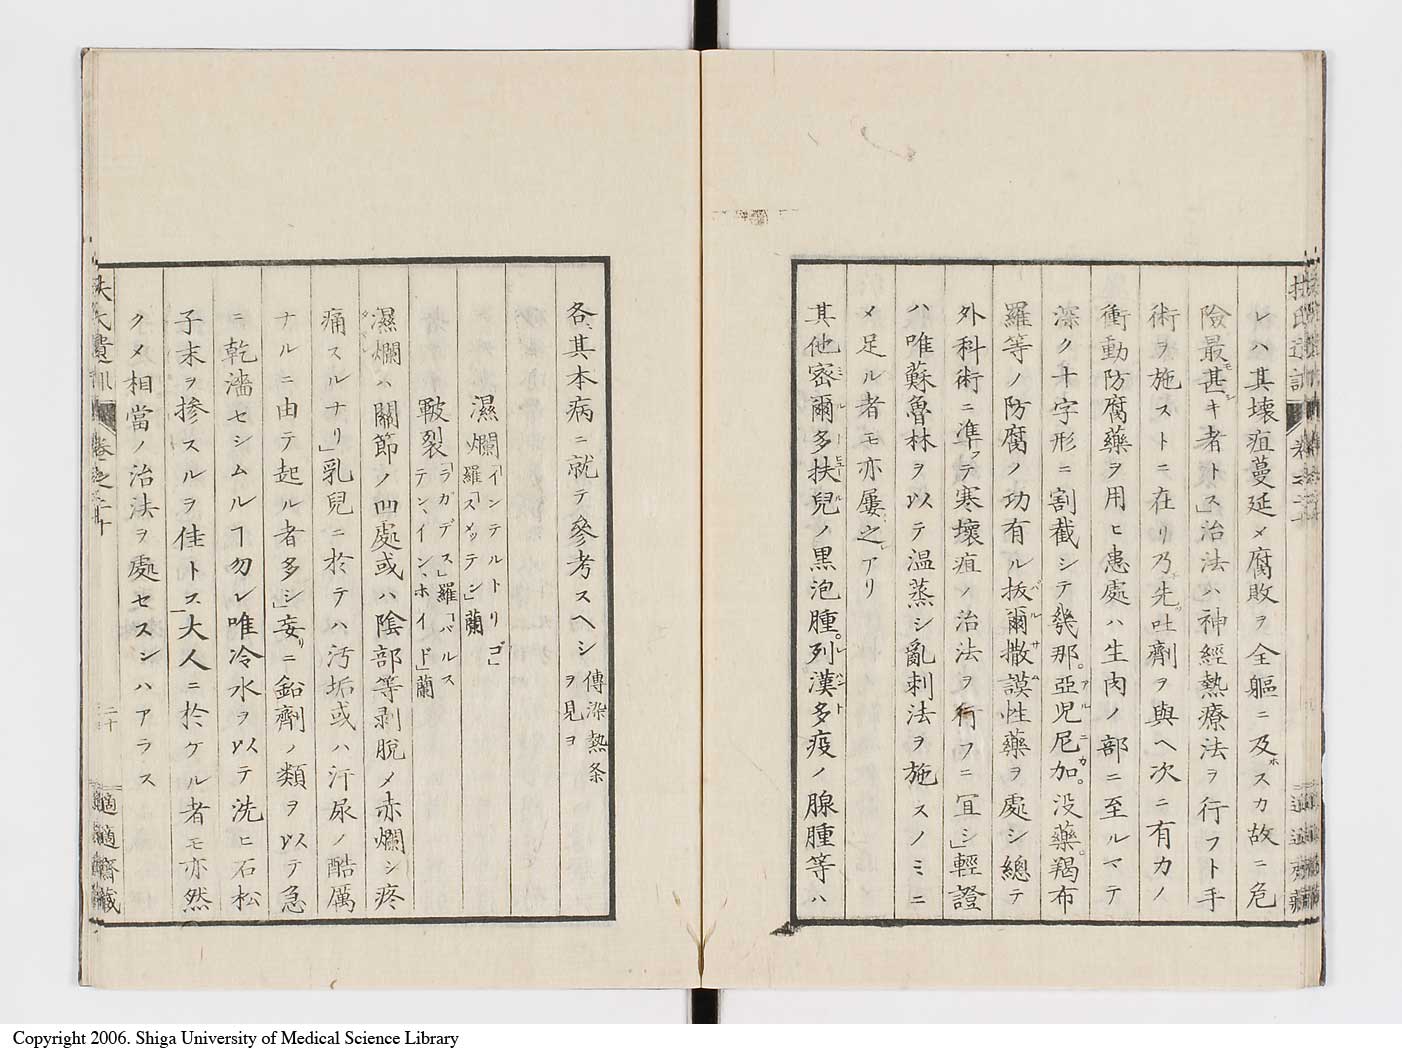 レハ其壊疽蔓延メ腐敗ヲ全軀ニ及ホスカ故ニ危
險最モ甚シキ者トス」治法ハ神經熱療法ヲ行フト手
術ヲ施ストニ在リ乃チ先ツ吐劑ヲ與ヘ次ニ有カノ
衝動防腐藥ヲ用ヒ患處ハ生肉ノ部ニ至ルマテ
深ク十字形ニ割截シテ幾那。亞兒尼加。没藥。羯布
アルニカ
羅等ノ防腐ノ功有ル拔爾撒謨性藥ヲ處シ總テ
バルサム
外科術ニ準ツテ寒壞疽ノ治法ヲ行フニ冝シ」輕證
ハ唯蘇魯林ヲ以テ温蒸シ亂刺法ヲ施スノミニ
メ足ル者モ亦屢之レアリ
其他密爾多扶兒ノ黒泡腫。列漢多疫ノ腺腫等ハ
各其本病ニ就テ參考スヘシ
傳染熱条
ヲ見ヨ
濕爛
「インテルトリゴ」
羅「スメッテン」蘭
皸裂
「ラガデス」羅「バルス
テン、イン、ホイド」蘭
濕爛ハ關節ノ凹處或ハ陰部等剥脱メ赤爛シ疼
痛スルナリ」乳兒ニ於テハ汚垢或ハ汗尿ノ酷厲
ナルニ由テ起ル者多シ」妄リニ鉛劑ノ類ヲ以テ急
ニ乾濇セシムルヿ勿レ唯冷水ヲ以テ洗ヒ石松
子末ヲ摻スルヲ佳トス」大人ニ於ケル者モ亦然
クメ相當ノ治法ヲ處セスンハアラス
扶氏遺訓
卷之二十
二十
適適齋藏
Copyright 2006. Shiga University of Medical Science Library